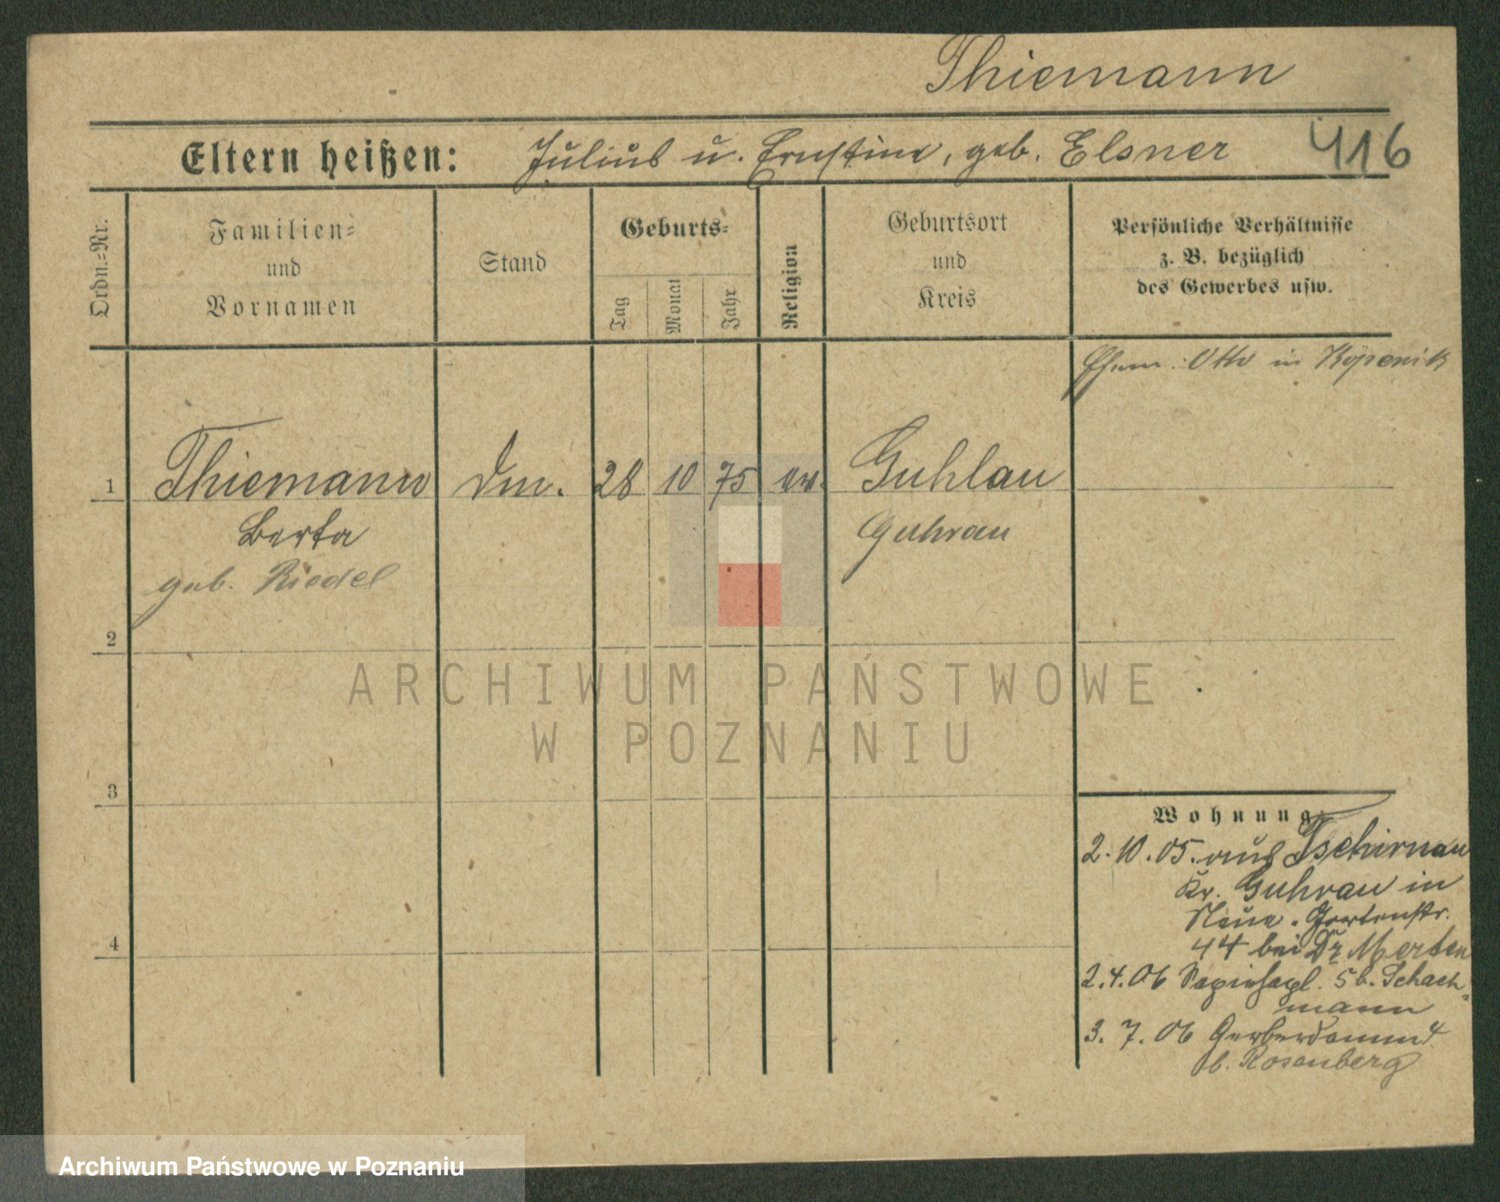 Thiemann
Eltern heißen: Julius u. Ernstine, geb. Elsner
416
Ordn.-Nr.
Familien-
und
Vornamen
Stand
Geburts-
Tag
Monat
Jahr
Religion
Geburtsort
und
Kreis
Persönliche Verhältnisse
z. B. bezüglich
des Gewerbes usw.
Ehem. Otto in Köpenik
1 Thiemann Dm. 28 10 75 ev. Guhlau
Berta Guhrau
geb. Riedel
2
3
4
Wohnung
2.10.05. aus Tschirnau
Kr. Guhrau in
Neue. Gartenstr.
44 bei Dr Merten
2.4.06 5 b. Schach-
mann
3.7.06 Gerberdamm 4
b. Rosenberg
ARCHIWUM PAŃSTWOWE
W POZNANIU
Archiwum Państwowe w Poznaniu